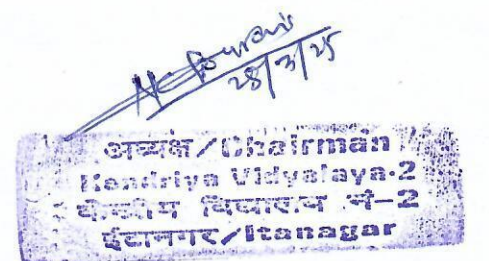 28/3/25
अध्यक्ष/Chairman
Kendriya Vidyalaya-2
केन्द्रीय विद्यालय नं-2
ईटानगर/Itanagar